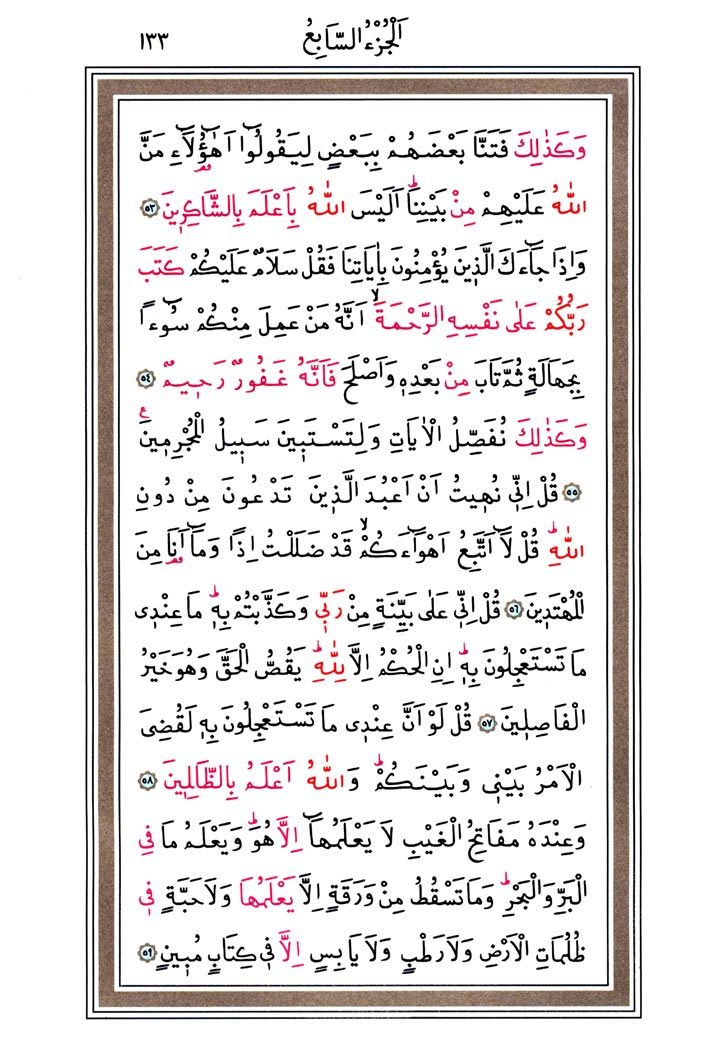 اَلْجُزْءُ السَّابِعُ ١٣٣
وَكَذٰلِكَ فَتَنَّا بَعْضَهُمْ بِبَعْضٍ لِيَقُولُٓوا اَهٰٓؤُ۬لَٓاءِ مَنَّ
اللّٰهُ عَلَيْهِمْ مِنْ بَيْنِنَاۜ اَلَيْسَ اللّٰهُ بِاَعْلَمَ بِالشَّاكِر۪ينَ ٥٣
وَاِذَا جَٓاءَكَ الَّذ۪ينَ يُؤْمِنُونَ بِاٰيَاتِنَا فَقُلْ سَلَامٌ عَلَيْكُمْ كَتَبَ
رَبُّكُمْ عَلٰى نَفْسِهِ الرَّحْمَةَۙ اَنَّهُ مَنْ عَمِلَ مِنْكُمْ سُٓوءاً
بِجَهَالَةٍ ثُمَّ تَابَ مِنْ بَعْدِه۪ وَاَصْلَحَ فَاَنَّهُ غَفُورٌ رَح۪يمٌ ٥٤
وَكَذٰلِكَ نُفَصِّلُ الْاٰيَاتِ وَلِتَسْتَب۪ينَ سَب۪يلُ الْمُجْرِم۪ينَ ع
٥٥ قُلْ اِنّ۪ي نُه۪يتُ اَنْ اَعْبُدَ الَّذ۪ينَ تَدْعُونَ مِنْ دُونِ
اللّٰهِۜ قُلْ لَٓا اَتَّبِعُ اَهْوَٓاءَكُمْۙ قَدْ ضَلَلْتُ اِذاً وَمَٓا اَنَا۬ مِنَ
الْمُهْتَد۪ينَ ٥٦ قُلْ اِنّ۪ي عَلٰى بَيِّنَةٍ مِنْ رَبّ۪ي وَكَذَّبْتُمْ بِه۪ۜ مَا عِنْد۪ي
مَا تَسْتَعْجِلُونَ بِه۪ۜ اِنِ الْحُكْمُ اِلَّا لِلّٰهِۜ يَقُصُّ الْحَقَّ وَهُوَ خَيْرُ
الْفَاصِل۪ينَ ٥٧ قُلْ لَوْ اَنَّ عِنْد۪ي مَا تَسْتَعْجِلُونَ بِه۪ لَقُضِيَ
الْاَمْرُ بَيْن۪ي وَبَيْنَكُمْۜ وَاللّٰهُ اَعْلَمُ بِالظَّالِم۪ينَ ٥٨
وَعِنْدَهُ مَفَاتِحُ الْغَيْبِ لَا يَعْلَمُهَٓا اِلَّا هُوَۜ وَيَعْلَمُ مَا فِي
الْبَرِّ وَالْبَحْرِۜ وَمَا تَسْقُطُ مِنْ وَرَقَةٍ اِلَّا يَعْلَمُهَا وَلَا حَبَّةٍ ف۪ي
ظُلُمَاتِ الْاَرْضِ وَلَا رَطْبٍ وَلَا يَابِسٍ اِلَّا ف۪ي كِتَابٍ مُب۪ينٍ ٥٩